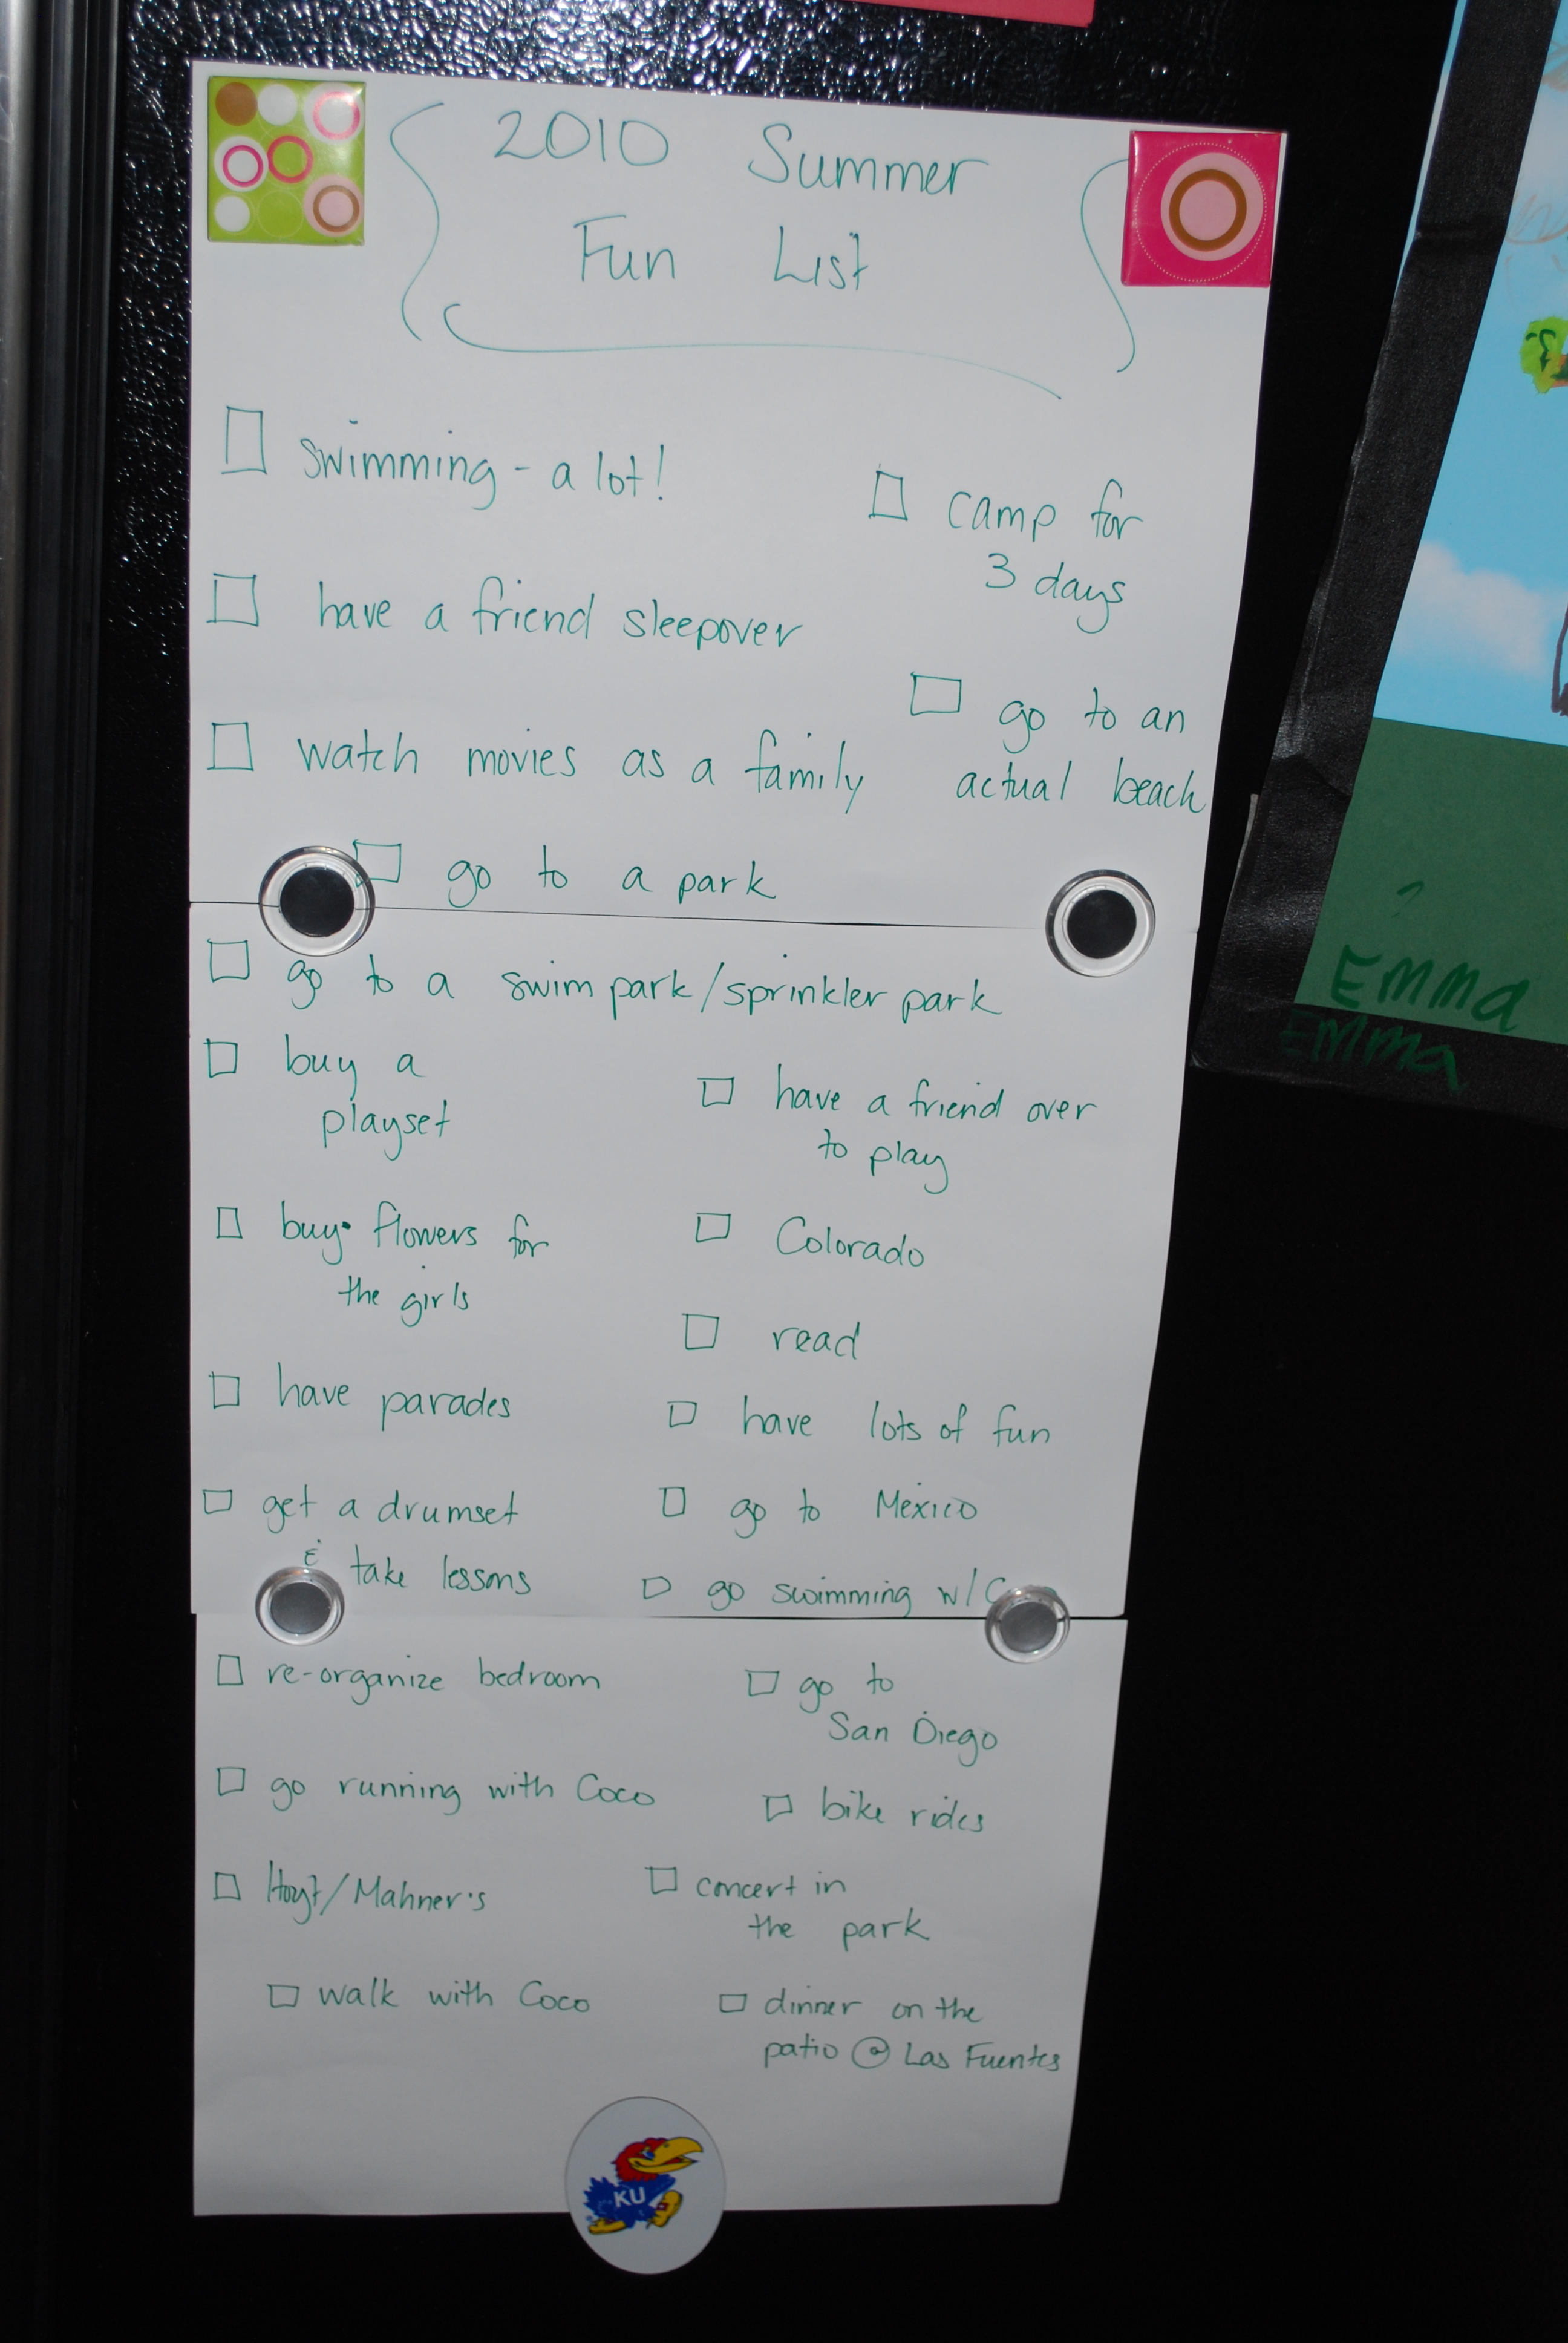 2010 Summer
Fun List
swimming - a lot!
camp for
3 days
have a friend sleepover
go to an
actual beach
watch movies as a family
go to a park
go to a swim park/sprinkler park
buy a
playset
have a friend over
to play
buy flowers for
the girls
Colorado
read
have parades
have lots of fun
get a drumset
& take lessons
go to Mexico
go swimming w/
re-organize bedroom
go to
San Diego
go running with Coco
bike rides
Hoyt/Mahner's
concert in
the park
walk with Coco
dinner on the
patio @ Las Fuentes
KU
EMMA
EMMA